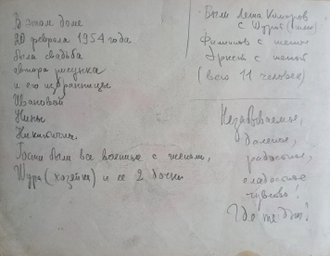 В этом доме
20 февраля 1954 года
была свадьба
автора рисунка
и его избранницы
Ивановой
Нины
Никитичны.
Гости были все военные с женами,
Шура (хозяйка) и ее 2 дочки
Были Леша
с Шурой
с женой
Эрнст с женой
(всего 11 человек)
Незабываемые,
далекие,
радостные,
сладостные
чувства!
Где те дни?